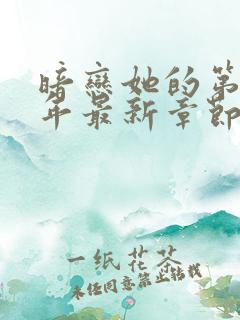 暗戀她的第
年最新章節
一纸花茶
未经同意禁止转载